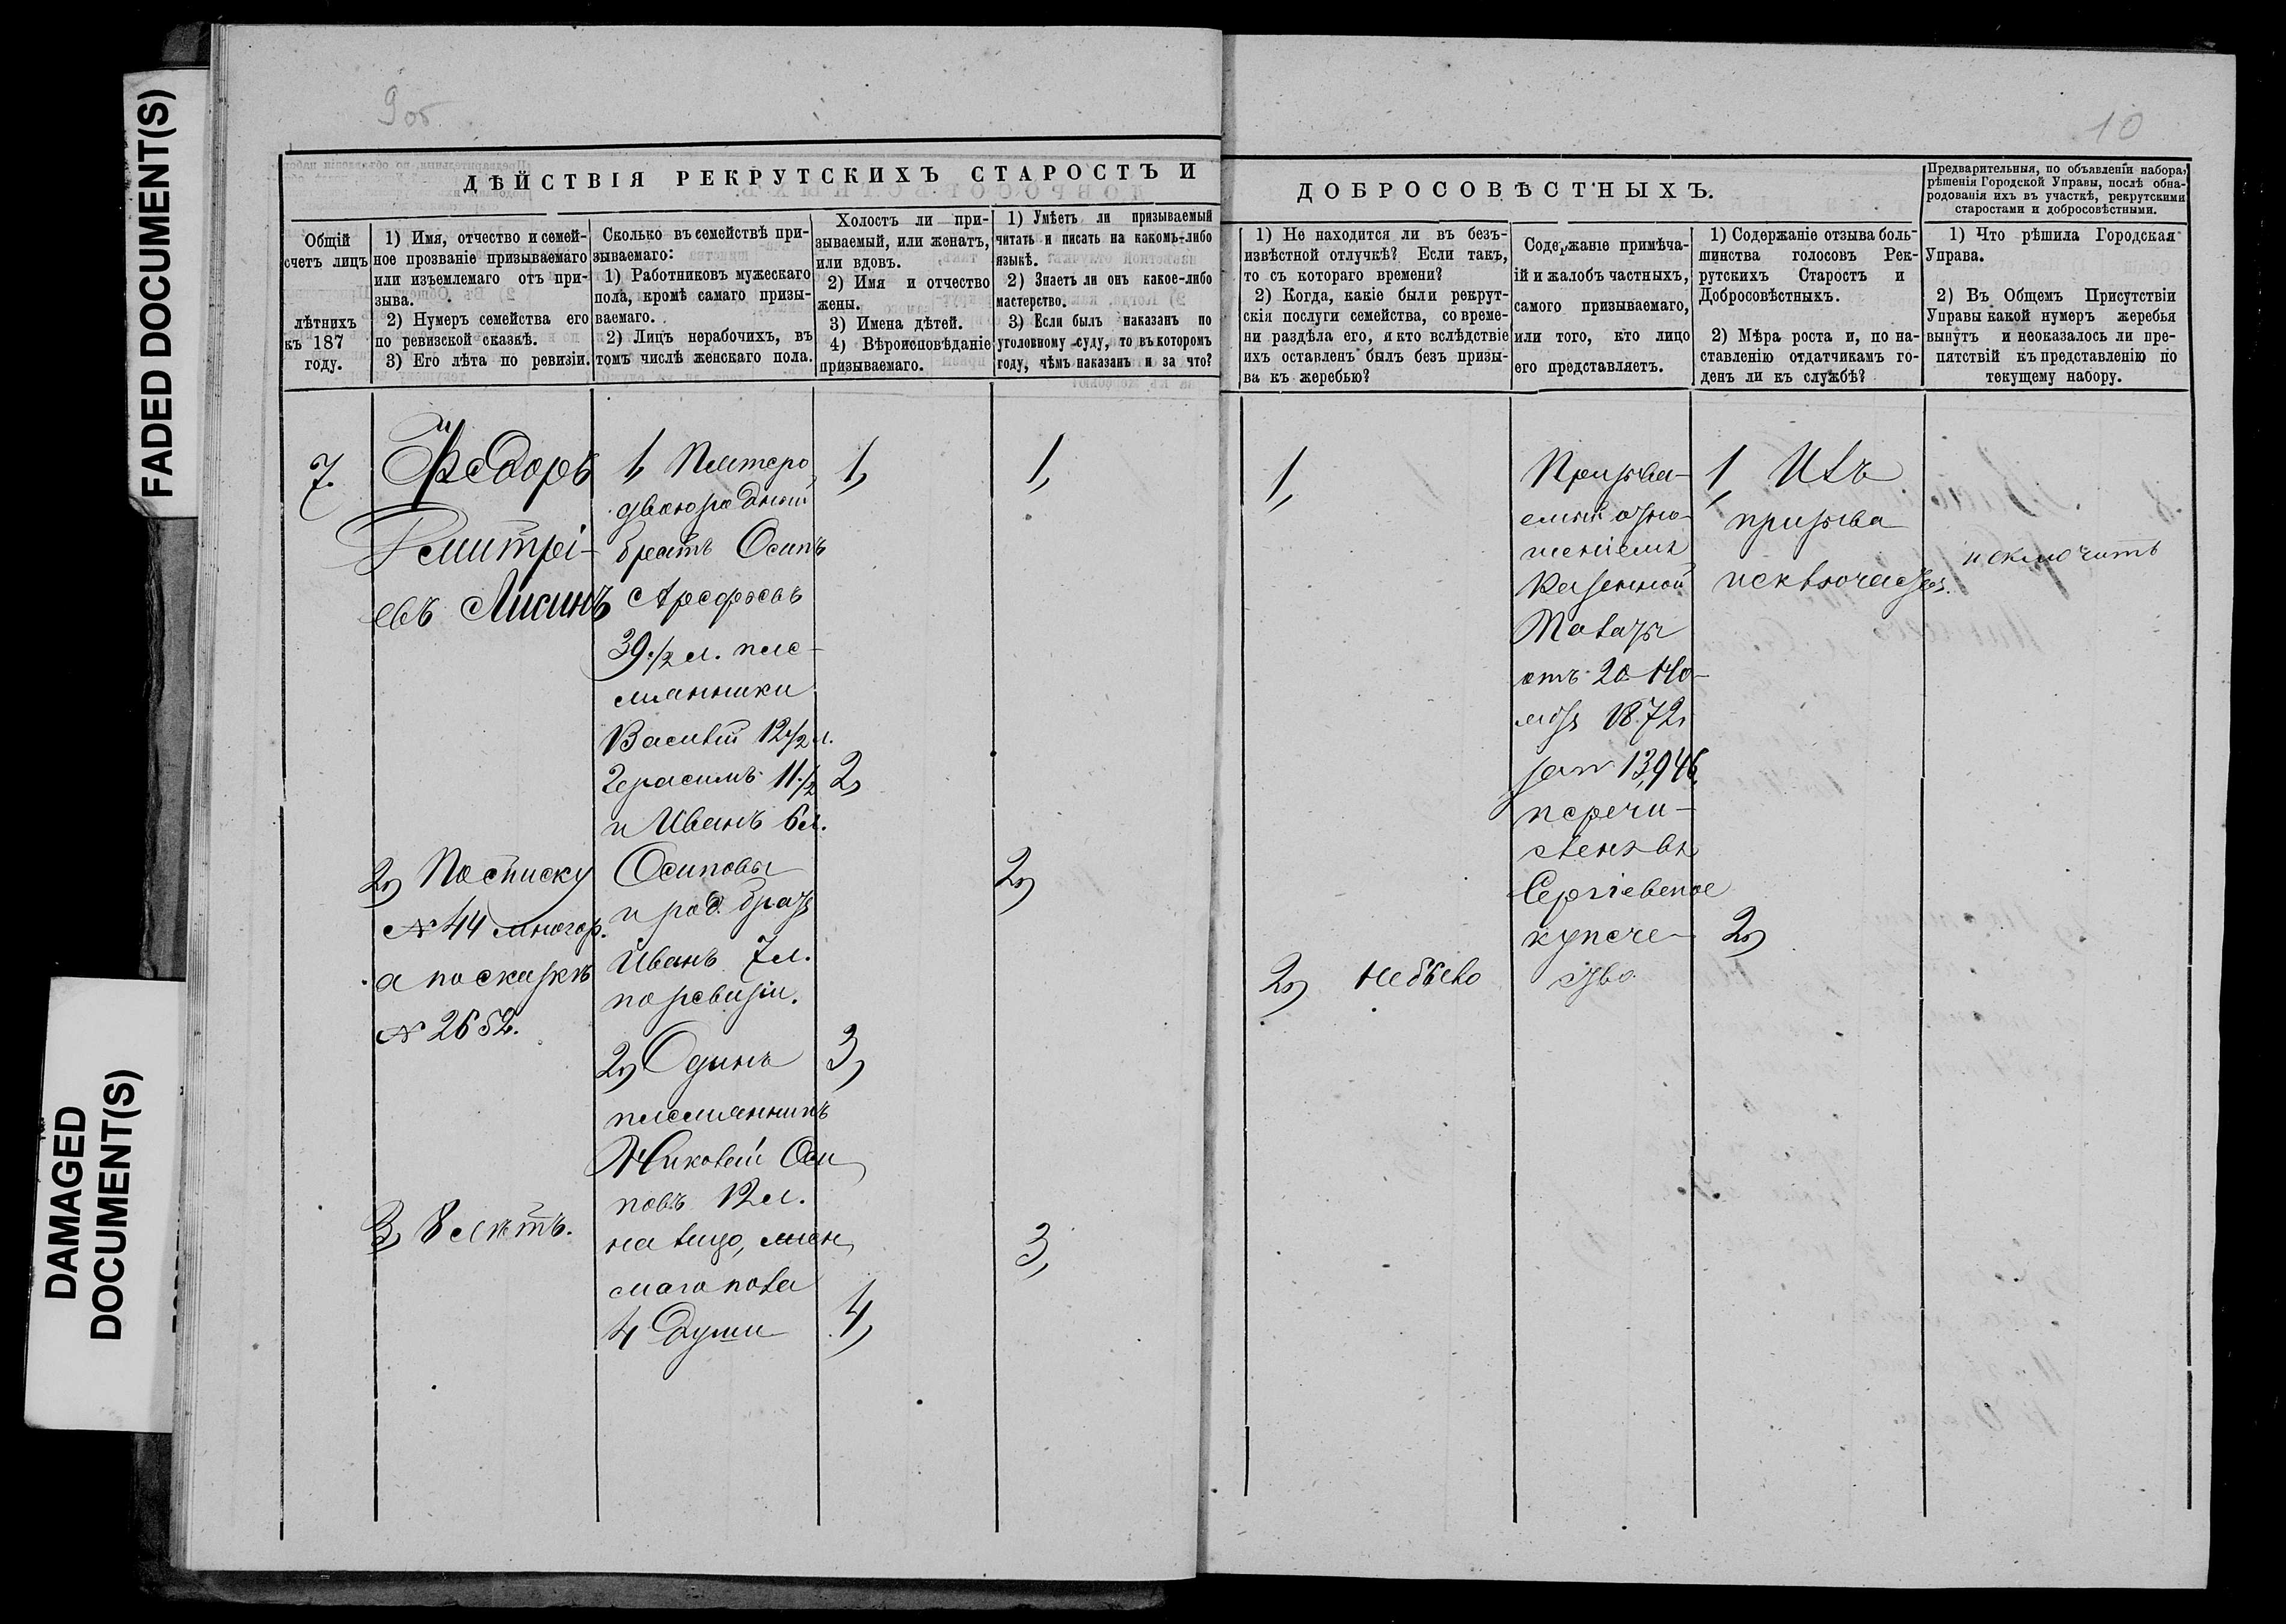 FADED DOCUMENT(S)
DAMAGED
DOCUMENT(S)
9 об
10
ДѢЙСТВІЯ РЕКРУТСКИХЪ СТАРОСТЪ И
ДОБРОСОВѢСТНЫХЪ.
Предварительныя, по объявленіи набора,
рѣшенія Городской Управы, послѣ обна-
родованія ихъ въ участкѣ, рекрутскими
старостами и добросовѣстными.
Общій
счетъ лицъ
лѣтнихъ
къ 187
году.
1) Имя, отчество и семей-
ное прозваніе призываемаго
или изъемлемаго отъ при-
зыва.
2) Нумеръ семейства его
по ревизской сказкѣ.
3) Его лѣта по ревизіи.
Сколько въ семействѣ при-
зываемаго:
1) Работниковъ мужескаго
пола, кромѣ самаго призы-
ваемаго.
2) Лицъ нерабочихъ, въ
томъ числѣ женскаго пола.
Холостъ ли при-
зываемый, или женатъ,
или вдовъ.
2) Имя и отчество
жены.
3) Имена дѣтей.
4) Вѣроисповѣданіе
призываемаго.
1) Умѣетъ ли призываемый
читать и писать на какомъ-либо
языкѣ.
2) Знаетъ ли онъ какое-либо
мастерство.
3) Если былъ наказанъ по
уголовному суду, то въ которомъ
году, чѣмъ наказанъ и за что?
1) Не находится ли въ безъ-
извѣстной отлучкѣ? Если такъ,
то съ котораго времени?
2) Когда, какіе были рекрут-
скія послуги семейства, со време-
ни раздѣла его, и кто вслѣдствіе
ихъ оставленъ былъ безъ призы-
ва къ жеребью?
Содержаніе примѣча-
ій и жалобъ частныхъ,
самого призываемаго,
или того, кто лицо
его представляетъ.
1) Содержаніе отзыва боль-
шинства голосовъ Рек-
рутскихъ Старостъ и
Добросовѣстныхъ.
2) Мѣра роста и, по на-
ставленію отдатчикамъ го-
денъ ли къ службѣ?
1) Что рѣшила Городская
Управа.
2) Въ Общемъ Присутствіи
Управы какой нумеръ жеребья
вынутъ и неоказалось ли пре-
пятствій къ представленію по
текущему набору.
7.
Ѳедоръ
Дмитрі-
евъ Лисинъ
2) По списку
№ 44 многор.
а по сказкѣ
№ 2652.
3) 8 лѣтъ.
1) Пятеро,
двоюродный
братъ Осипъ
Арефьевъ
39 1/2 л. пле-
мянники
Василій 12 1/2 л.
Герасимъ 11 1/2
и Иванъ 6 л.
Осиповы
и род. братъ
Иванъ 7 л.
по ревизіи.
2) Одинъ
племянникъ
Николай Оси
повъ 12 л.
на лицо, жен
скаго пола
4 души
1)
2)
3)
4)
1)
2)
3)
1)
2) Небыло
Призыва-
емый отно-
шеніемъ
Казенной
Палаты
отъ 20 Но-
ября 1872 г.
за № 13,946
перечи-
сленъ въ
Сергіевское
купече-
ство
1) Изъ
призыва
исключается.
2)
исключить